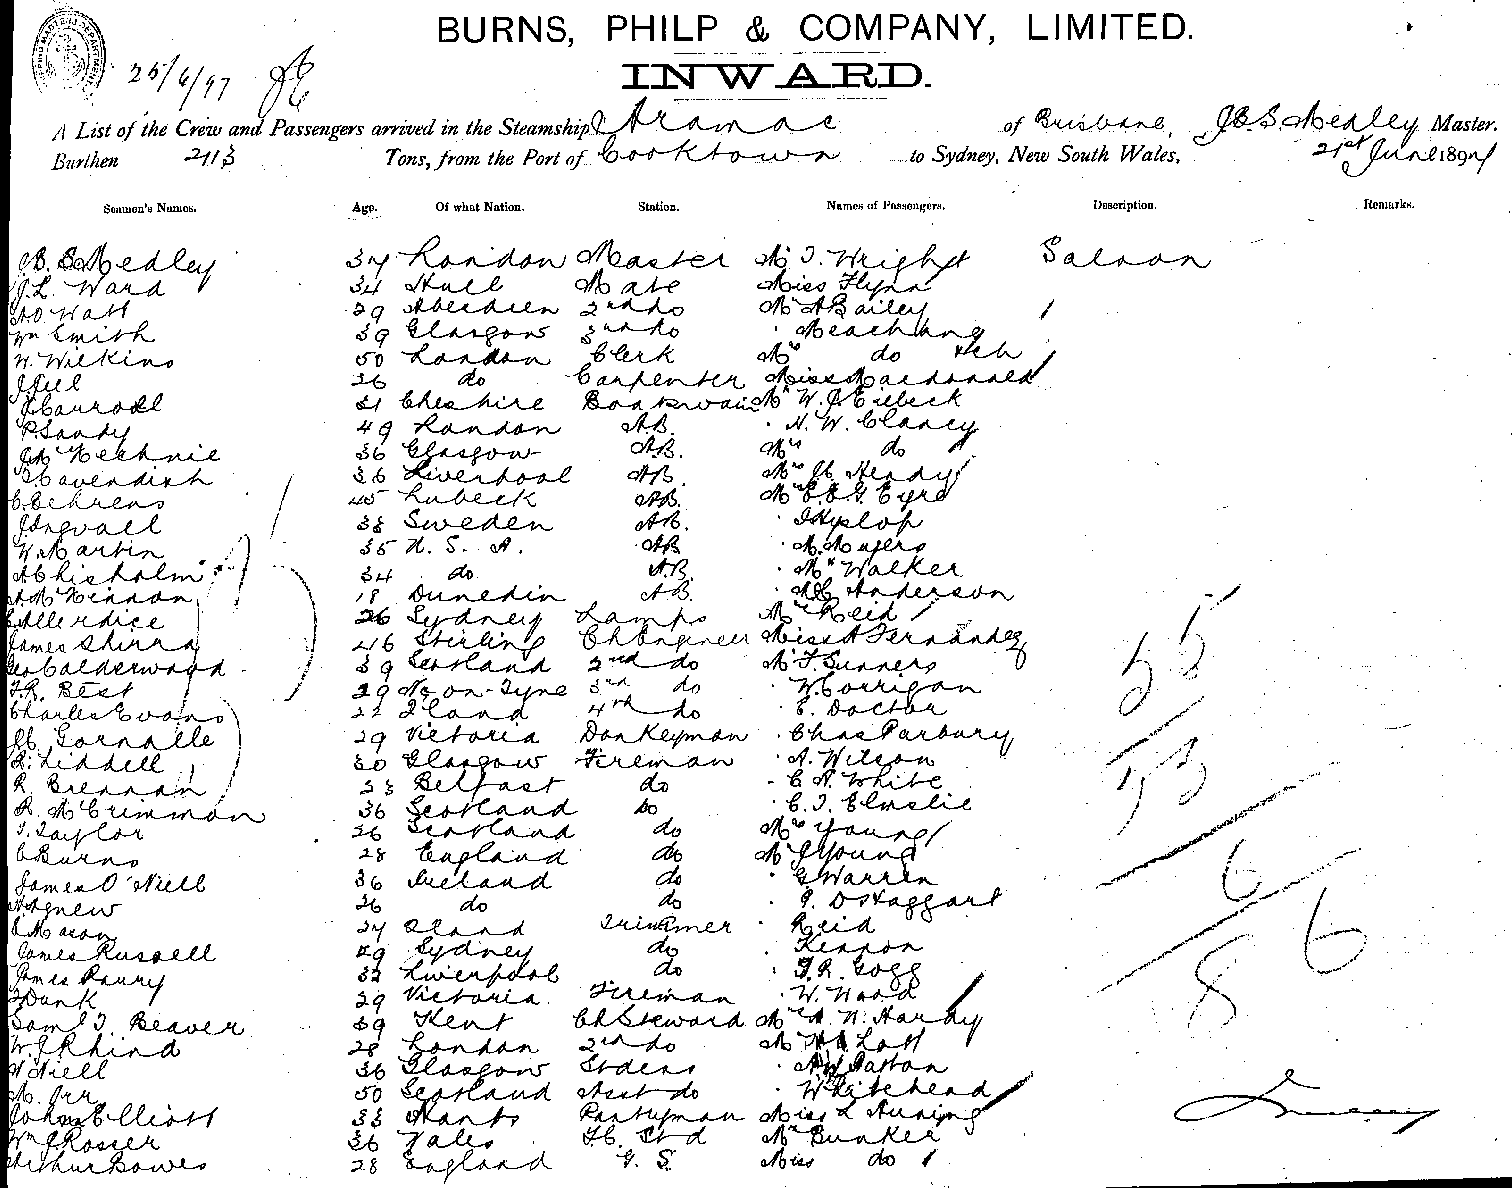 BURNS, PHILP & COMPANY, LIMITED.
INWARD.
25/6/97
A List of the Crew and Passengers arrived in the Steamship Aramac of Brisbane, J.B.S. Medley Master.
Burthen 2113 Tons, from the Port of Cooktown to Sydney, New South Wales, 21st June 1897
Seamen's Names. Age. Of what Nation. Station. Names of Passengers. Description. Remarks.
J.B. S Medley 37 London Master Mr J. Wright Saloon
J.L. Ward 34 Hull Mate Miss Flynn
Watt 29 Aberdeen 2nd do Mr A Bailey
Wm Smith 39 Glasgow 3rd do Meacham
W. Wilkins 50 London Clerk Mrs do
26 do Carpenter Miss Macdonald
J Carroll 31 Cheshire Boatswain Mr W. J
P. Sandy 49 London A.B. H. W. Clancy
McKechnie 36 Glasgow A.B. Mrs do
Cavendish 36 Liverpool A.B. Mrs Hendy
C. Behrens 45 Lubeck A.B. Eyre
J. Ingvall 38 Sweden A.B. J Hyslop
W. Martin 35 U. S. A. AB M. Myers
A Chisholm 34 do A.B. Walker
A. McKinnon 18 Dunedin A.B. Anderson
Allerdice 26 Sydney Lamps Mrs Reid
James Shirra 46 Stirling Ch Engineer Miss A Fernandez
Geo Calderwood 39 Scotland 2nd do Mr T. Sunners
J.R. Best 29 Nc on-Tyne 3rd do W Corrigan
Charles Evans 22 4th do E. Doctor
Gornalle 29 Victoria Donkeyman Chas Parbury
R. Liddell 30 Glasgow Fireman A. Wilson
R. Brennan 23 Belfast do C A. White
R. McCrimmon 36 Scotland do C. J. Elmslie
J. Taylor 26 Scotland do Mrs Young
C Burns 28 England do Mr J Young
James O'Niell 36 Ireland do G Warren
A Agnew 26 do do D Haggart
C Mason 24 Trimmer Reid
James Russell 29 Sydney do Lennon
James Raury 32 Liverpool do J.R. Gogg
J Dunk 29 Victoria Fireman W. Wood
Saml J. Beaver 39 Kent Ch Steward W. Hardy
W. J Rhind 28 London 2nd do Lott
Niell 36 Glasgow Stdess Paton
M. Orr 50 Scotland Asst do Whitehead
John Elliott 33 Hants Pantryman Miss L Huning
Wm J Rosser 36 Wales F.C. Std Mr Bunker
Arthur Bowes 28 England G. S. Miss do
55
53
6
8
6